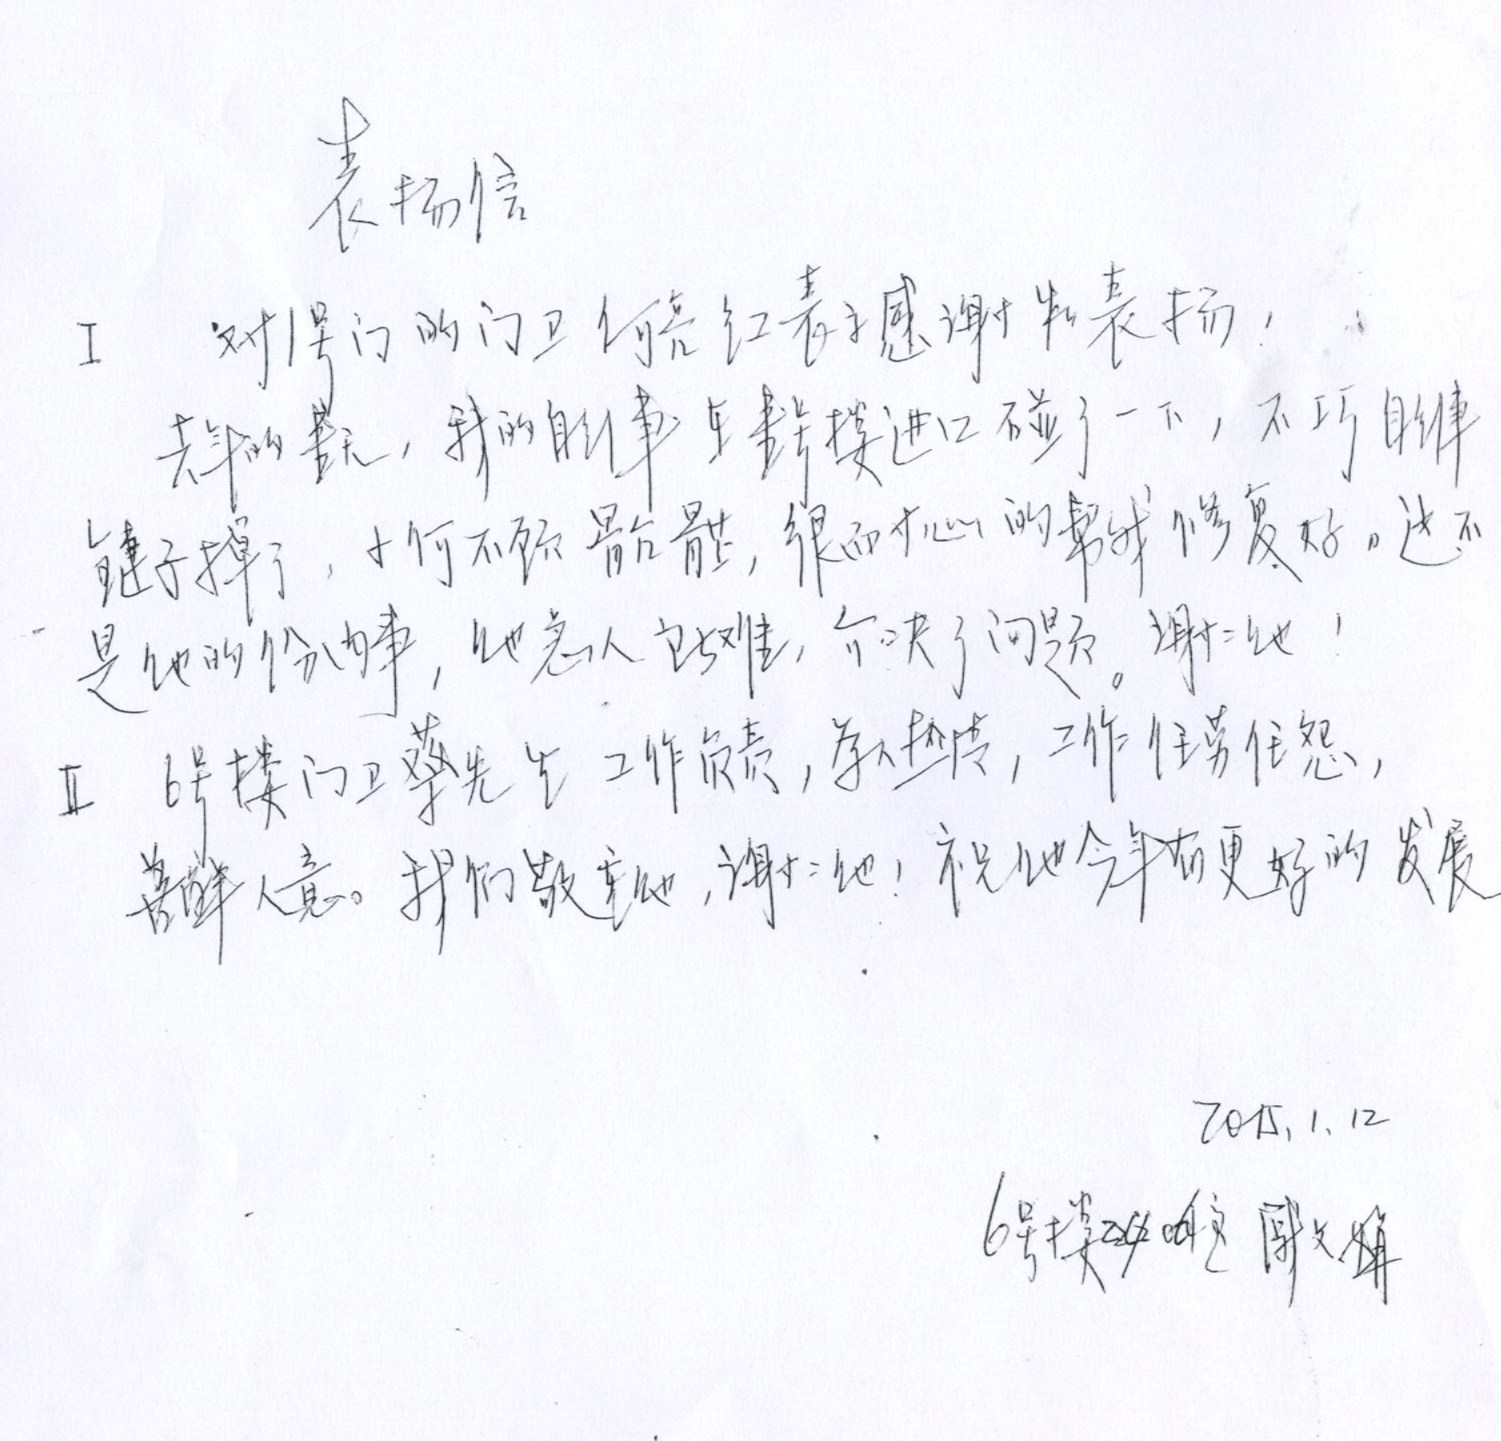 表扬信
I 对1号门的门卫何亮红表示感谢和表扬！
去年的夏天，我的自行车在号楼进口碰了一下，不巧自行车
链子掉了，小何不顾骯髒，很耐心的帮我修复好。这不
是他的份内事，他急人所难，介决了问题。谢谢他！
II 6号楼门卫蔡先生工作负责，待人热情，工作任劳任怨，
善解人意。我们敬重他，谢谢他！祝他今年有更好的发展
2015.1.12
6号楼 室 文